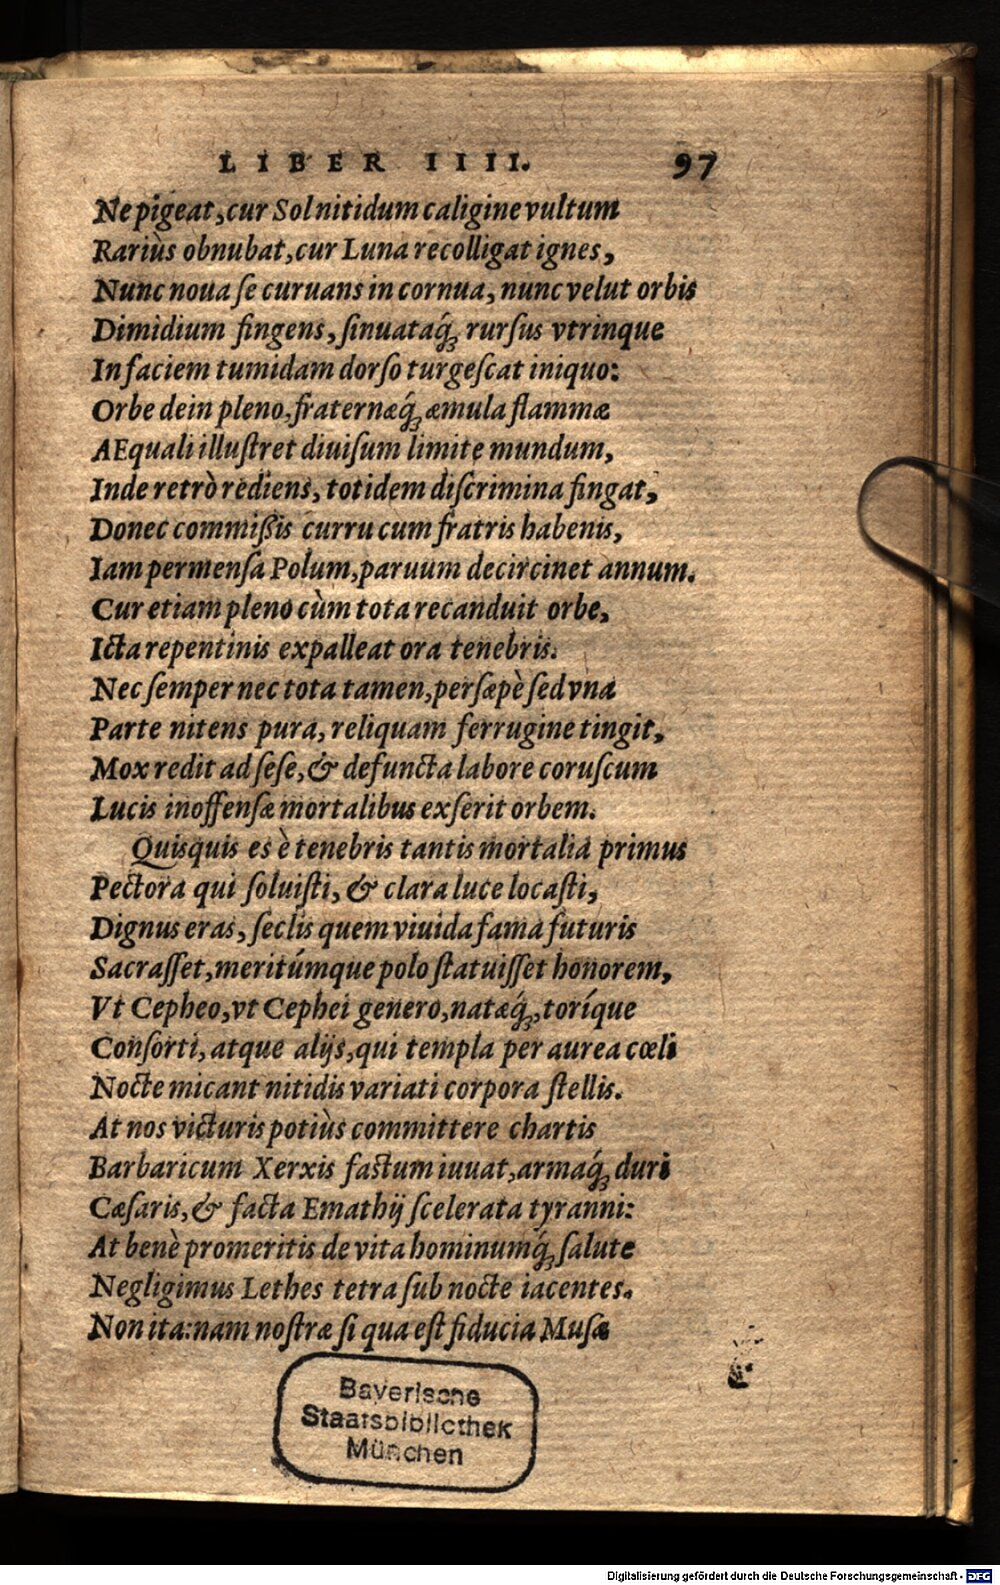 LIBER IIII. 97
Ne pigeat, cur Sol nitidum caligine vultum
Rariùs obnubat, cur Luna recolligat ignes,
Nunc noua se curuans in cornua, nunc velut orbis
Dimidium fingens, sinuataq́; rursus vtrinque
In faciem tumidam dorso turgescat iniquo:
Orbe dein pleno, fraternæq́; æmula flammæ
AEquali illustret diuisum limite mundum,
Inde retrò rediens, totidem discrimina fingat,
Donec commißis curru cum fratris habenis,
Iam permensa Polum, paruum decircinet annum.
Cur etiam pleno cùm tota recanduit orbe,
Icta repentinis expalleat ora tenebris.
Nec semper nec tota tamen, persæpè sed vna
Parte nitens pura, reliquam ferrugine tingit,
Mox redit ad sese, & defuncta labore coruscum
Lucis inoffensæ mortalibus exserit orbem.
Quisquis es è tenebris tantis mortalia primus
Pectora qui soluisti, & clara luce locasti,
Dignus eras, seclis quem viuida fama futuris
Sacrasset, meritúmque polo statuisset honorem,
Vt Cepheo, vt Cephei genero, natæq́;, toríque
Consorti, atque alijs, qui templa per aurea cœli
Nocte micant nitidis variati corpora stellis.
At nos victuris potiùs committere chartis
Barbaricum Xerxis fastum iuuat, armaq́; duri
Cæsaris, & facta Emathij scelerata tyranni:
At benè promeritis de vita hominumq́; salute
Negligimus Lethes tetra sub nocte iacentes.
Non ita: nam nostræ si qua est fiducia Musæ
Bayerische
Staatsbibliothek
München
Digitalisierung gefördert durch die Deutsche Forschungsgemeinschaft - DFG